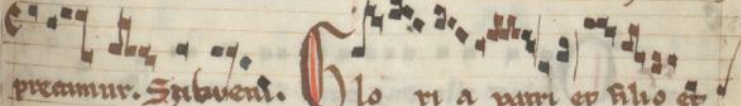 precamur. Subueni. Glo ri a patri et filio et